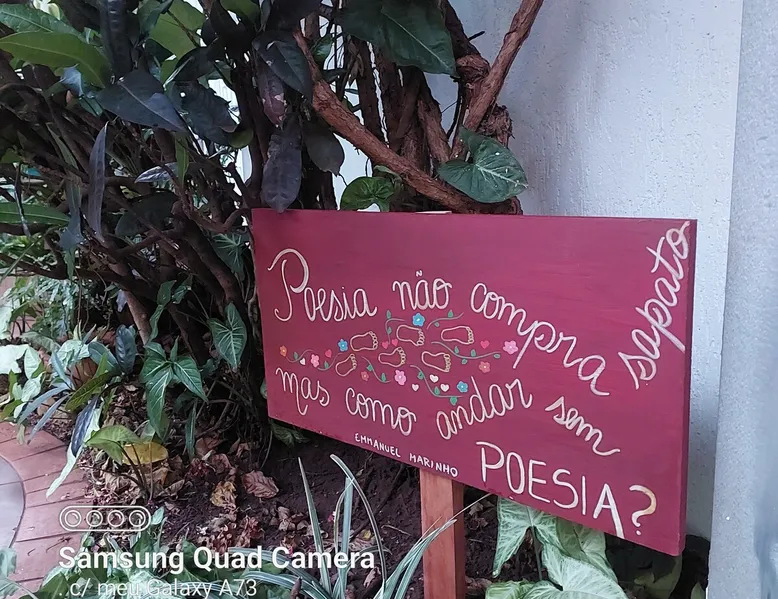 Poesia não compra sapato
mas como andar sem
EMMANUEL MARINHO
POESIA?
Samsung Quad Camera
..c/ meu Galaxy A73